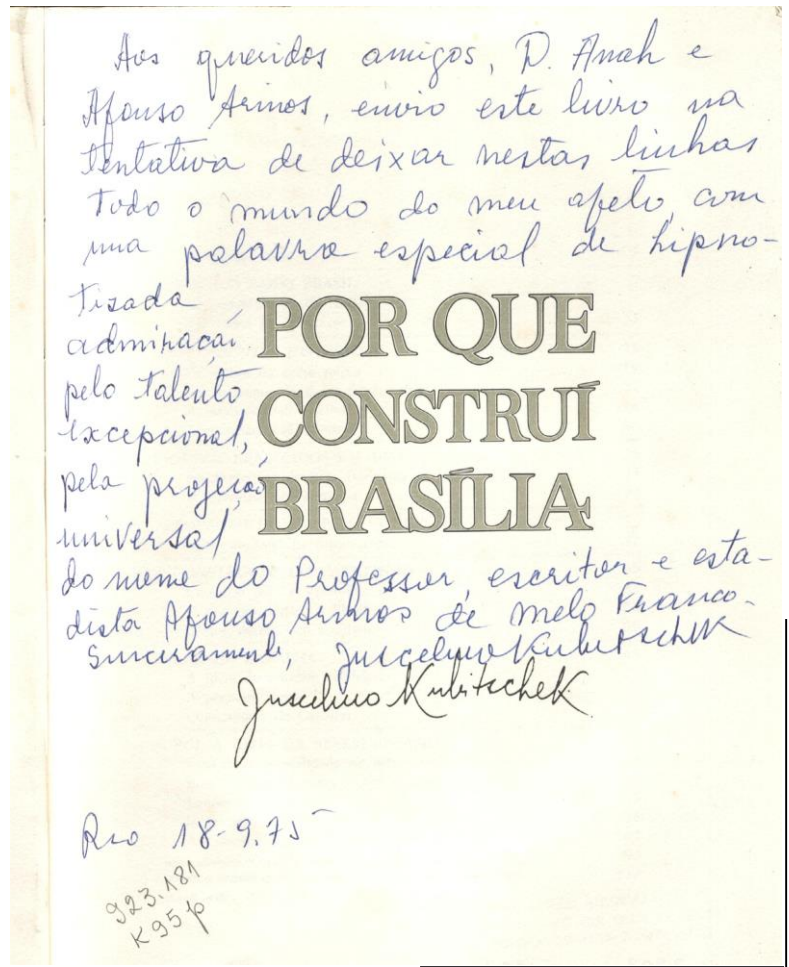 Aos queridos amigos, D. Anah e
Afonso Arinos, envio este livro na
tentativa de deixar nestas linhas
todo o mundo do meu afeto, com
uma palavra especial de hipno-
tizada
admiração
pelo talento
excepcional,
pela projeção
universal
POR QUE
CONSTRUÍ
BRASÍLIA
do nome do Professor, escritor e esta-
dista Afonso Arinos de Melo Franco.
Sinceramente, Juscelino Kubitschek
Juscelino Kubitschek
Rio 18-9-75
923.181
K95p